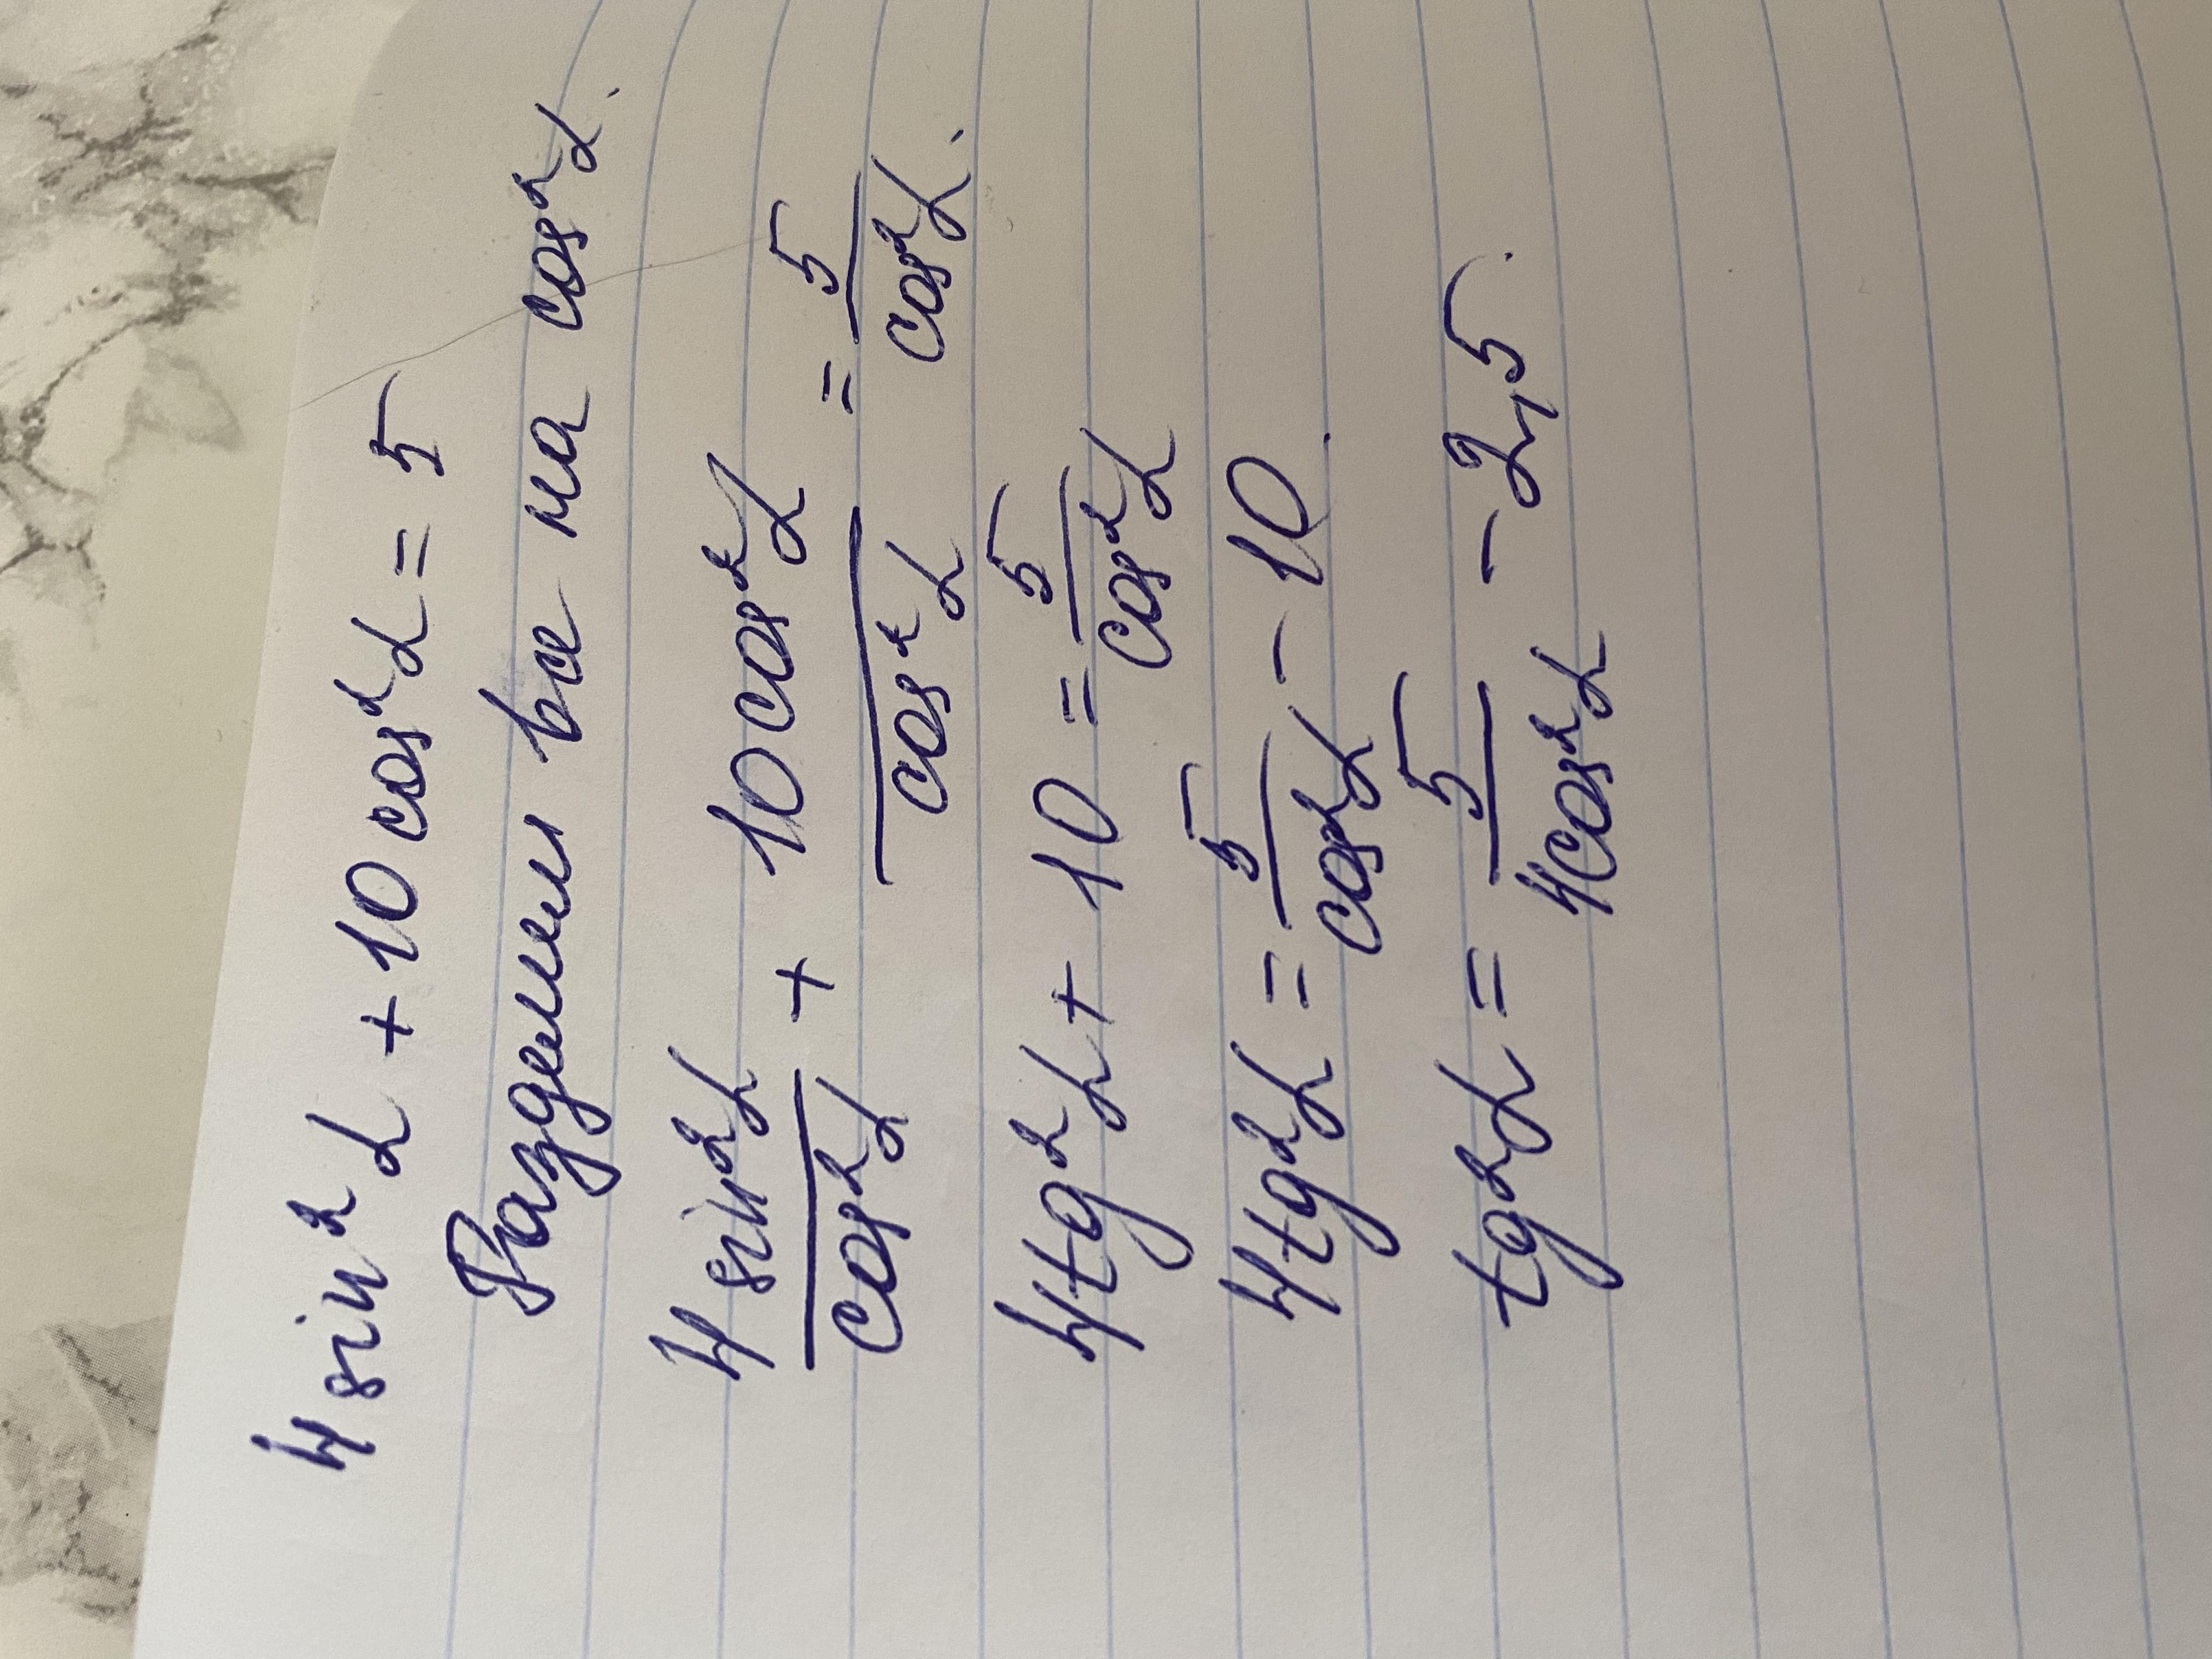 4 sin² α + 10 cos² α = 5
Разделим все на cos² α.
4 sin² α / cos² α + 10 cos² α / cos² α = 5 / cos² α.
4 tg² α + 10 = 5 / cos² α
4 tg² α = 5 / cos² α - 10.
tg² α = 5 / 4 cos² α - 2,5.